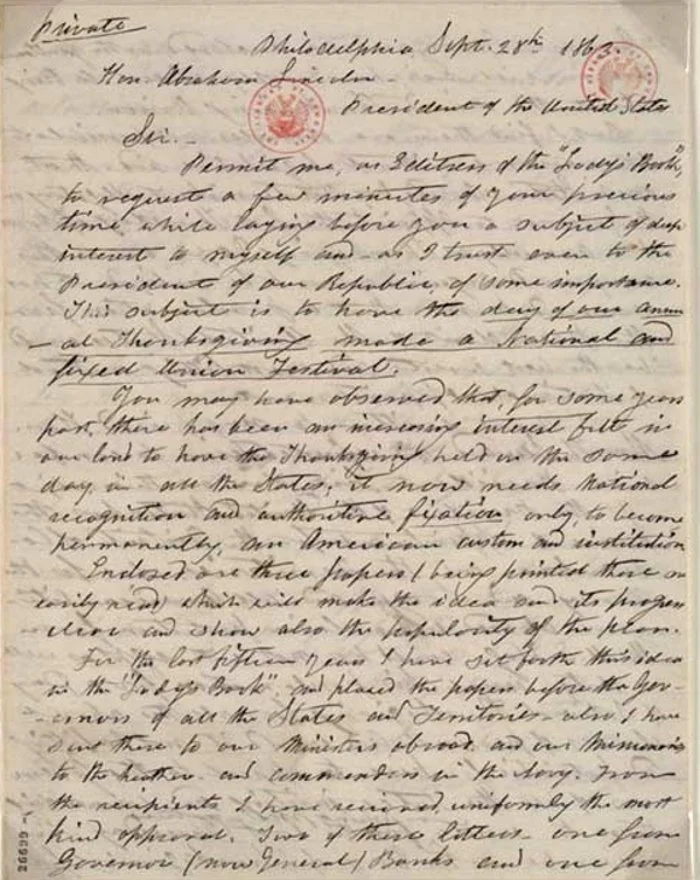 Private
Philadelphia, Sept. 28th 1863.
Hon. Abraham Lincoln -
President of the United States
Sir. -
Permit me, as Editress of the "Lady's Book",
to request a few minutes of your precious
time, while laying before you a subject of deep
interest to myself and - as I trust - even to the
President of our Republic, of some importance.
This subject is to have the day of our annu
- al Thanksgiving made a National and
fixed Union Festival.
You may have observed that, for some years
past, there has been an increasing interest felt in
our land to have the Thanksgiving held on the same
day, in all the States; it now needs National
recognition and authoritive fixation, only, to become
permanently, an American custom and institution.
Enclosed are three papers (being printed these are
easily read) which will make the idea and its progress
clear and show also the popularity of the plan.
For the last fifteen years I have set forth this idea
in the "Lady's Book", and placed the papers before the Gov-
-ernors of all the States and Territories - also I have
sent these to our Ministers abroad, and our Missionaries
to the heathen - and commanders in the Navy. From
the recipients I have received, uniformly the most
kind approval. Two of these letters, one from
Governor (now General) Banks and one from
26699